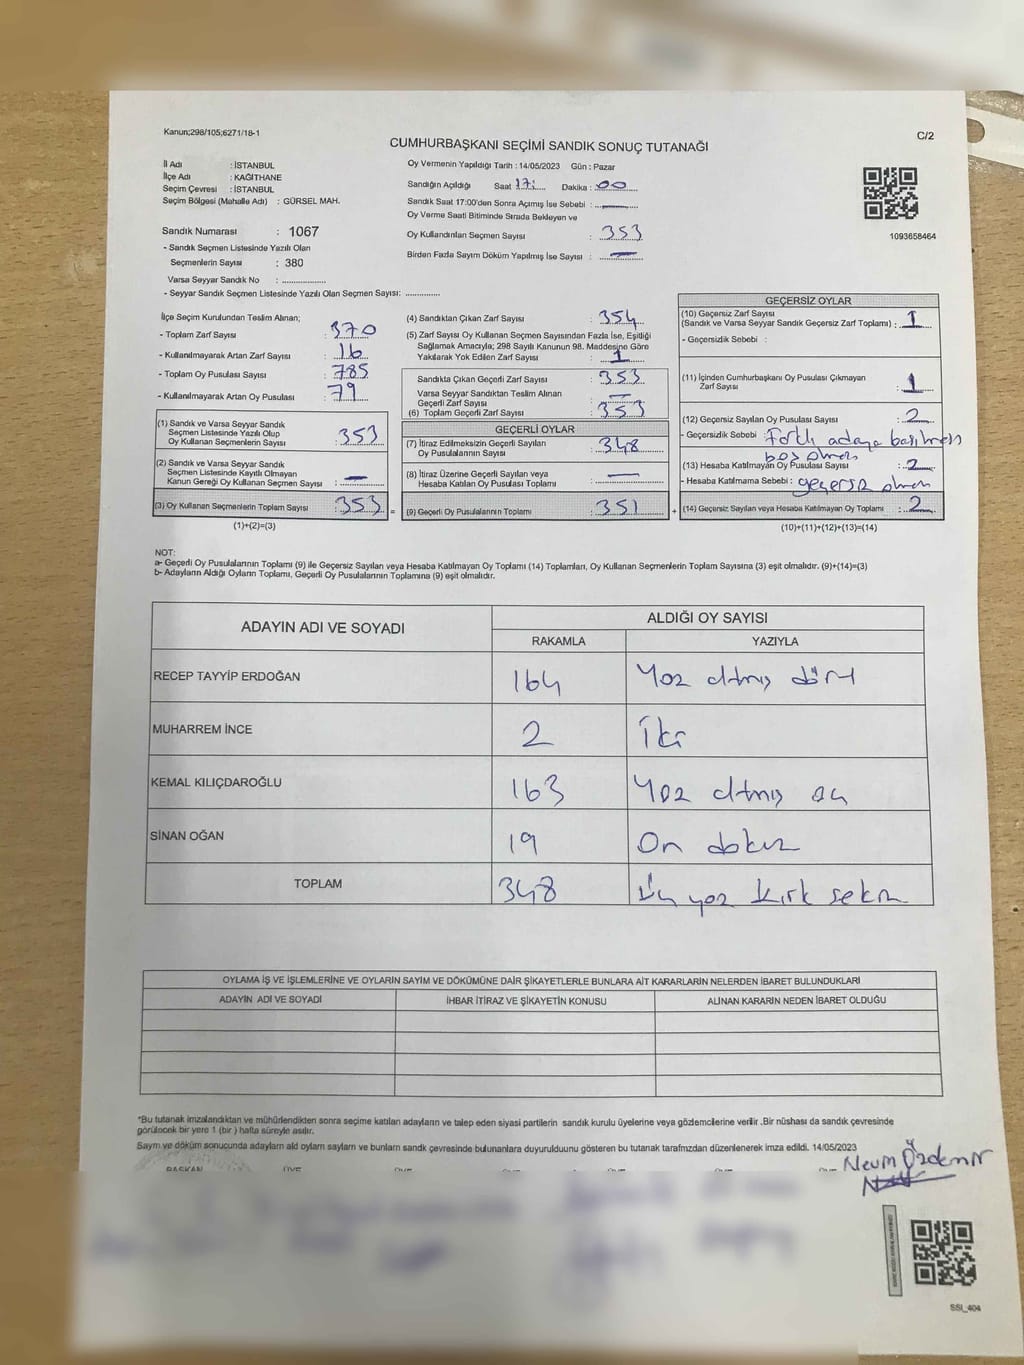 Kanun;298/105;6271/18-1
C/2
CUMHURBAŞKANI SEÇİMİ SANDIK SONUÇ TUTANAĞI
İl Adı : İSTANBUL
İlçe Adı : KAĞITHANE
Seçim Çevresi : İSTANBUL
Seçim Bölgesi (Mahalle Adı) : GÜRSEL MAH.
Sandık Numarası : 1067
- Sandık Seçmen Listesinde Yazılı Olan
Seçmenlerin Sayısı : 380
Varsa Seyyar Sandık No : ..............
- Seyyar Sandık Seçmen Listesinde Yazılı Olan Seçmen Sayısı: ...........
Oy Vermenin Yapıldığı Tarih : 14/05/2023 Gün : Pazar
Sandığın Açıldığı Saat 17: Dakika : 00
Sandık Saat 17:00'den Sonra Açılmış İse Sebebi : —
Oy Verme Saati Bitiminde Sırada Bekleyen ve
Oy Kullandırılan Seçmen Sayısı : 353
Birden Fazla Sayım Döküm Yapılmış İse Sayısı : —
1093658464
İlçe Seçim Kurulundan Teslim Alınan;
- Toplam Zarf Sayısı : 370
- Kullanılmayarak Artan Zarf Sayısı : 16
- Toplam Oy Pusulası Sayısı : 785
- Kullanılmayarak Artan Oy Pusulası : 79
(1) Sandık ve Varsa Seyyar Sandık
Seçmen Listesinde Yazılı Olup
Oy Kullanan Seçmenlerin Sayısı : 353
(2) Sandık ve Varsa Seyyar Sandık
Seçmen Listesinde Kayıtlı Olmayan
Kanun Gereği Oy Kullanan Seçmen Sayısı : —
(3) Oy Kullanan Seçmenlerin Toplam Sayısı : 353
(1)+(2)=(3)
(4) Sandıktan Çıkan Zarf Sayısı : 354
(5) Zarf Sayısı Oy Kullanan Seçmen Sayısından Fazla İse, Eşitliği
Sağlamak Amacıyla; 298 Sayılı Kanunun 98. Maddesine Göre
Yakılarak Yok Edilen Zarf Sayısı : 1
Sandıkta Çıkan Geçerli Zarf Sayısı : 353
Varsa Seyyar Sandıktan Teslim Alınan
Geçerli Zarf Sayısı : —
(6) Toplam Geçerli Zarf Sayısı : 353
GEÇERLİ OYLAR
(7) İtiraz Edilmeksizin Geçerli Sayılan
Oy Pusulalarının Sayısı : 348
(8) İtiraz Üzerine Geçerli Sayılan veya
Hesaba Katılan Oy Pusulası Toplamı : —
= (9) Geçerli Oy Pusulalarının Toplamı : 351
GEÇERSİZ OYLAR
(10) Geçersiz Zarf Sayısı
(Sandık ve Varsa Seyyar Sandık Geçersiz Zarf Toplamı) : 1
- Geçersizlik Sebebi :
(11) İçinden Cumhurbaşkanı Oy Pusulası Çıkmayan
Zarf Sayısı : 1
(12) Geçersiz Sayılan Oy Pusulası Sayısı : 2
- Geçersizlik Sebebi : Farklı adaya basılması
boş olması
(13) Hesaba Katılmayan Oy Pusulası Sayısı : 2
- Hesaba Katılmama Sebebi : geçersiz olması
+ (14) Geçersiz Sayılan veya Hesaba Katılmayan Oy Toplamı : 2
(10)+(11)+(12)+(13)=(14)
NOT:
a- Geçerli Oy Pusulalarının Toplamı (9) ile Geçersiz Sayılan veya Hesaba Katılmayan Oy Toplamı (14) Toplamları, Oy Kullanan Seçmenlerin Toplam Sayısına (3) eşit olmalıdır. (9)+(14)=(3)
b- Adayların Aldığı Oyların Toplamı, Geçerli Oy Pusulalarının Toplamına (9) eşit olmalıdır.
ADAYIN ADI VE SOYADI ALDIĞI OY SAYISI
RAKAMLA YAZIYLA
RECEP TAYYİP ERDOĞAN 164 Yüz altmış dört
MUHARREM İNCE 2 İki
KEMAL KILIÇDAROĞLU 163 Yüz altmış üç
SİNAN OĞAN 19 On dokuz
TOPLAM 348 Üç yüz kırk sekiz
OYLAMA İŞ VE İŞLEMLERİNE VE OYLARIN SAYIM VE DÖKÜMÜNE DAİR ŞİKAYETLERLE BUNLARA AİT KARARLARIN NELERDEN İBARET BULUNDUKLARI
ADAYIN ADI VE SOYADI İHBAR İTİRAZ VE ŞİKAYETİN KONUSU ALINAN KARARIN NEDEN İBARET OLDUĞU
*Bu tutanak imzalandıktan ve mühürlendikten sonra seçime katılan adayların ve talep eden siyasi partilerin sandık kurulu üyelerine veya gözlemcilerine verilir .Bir nüshası da sandık çevresinde
görülecek bir yere 1 (bir ) hafta süreyle asılır.
Sayım ve döküm sonucunda adayların aldı oyların sayıların ve bunların sandk çevresinde bulunanlara duyurulduunu gösteren bu tutanak tarafmzdan düzenlenerek imza edildi. 14/05/2023
BAŞKAN ÜYE
Nevin Özdemir
SSI_404